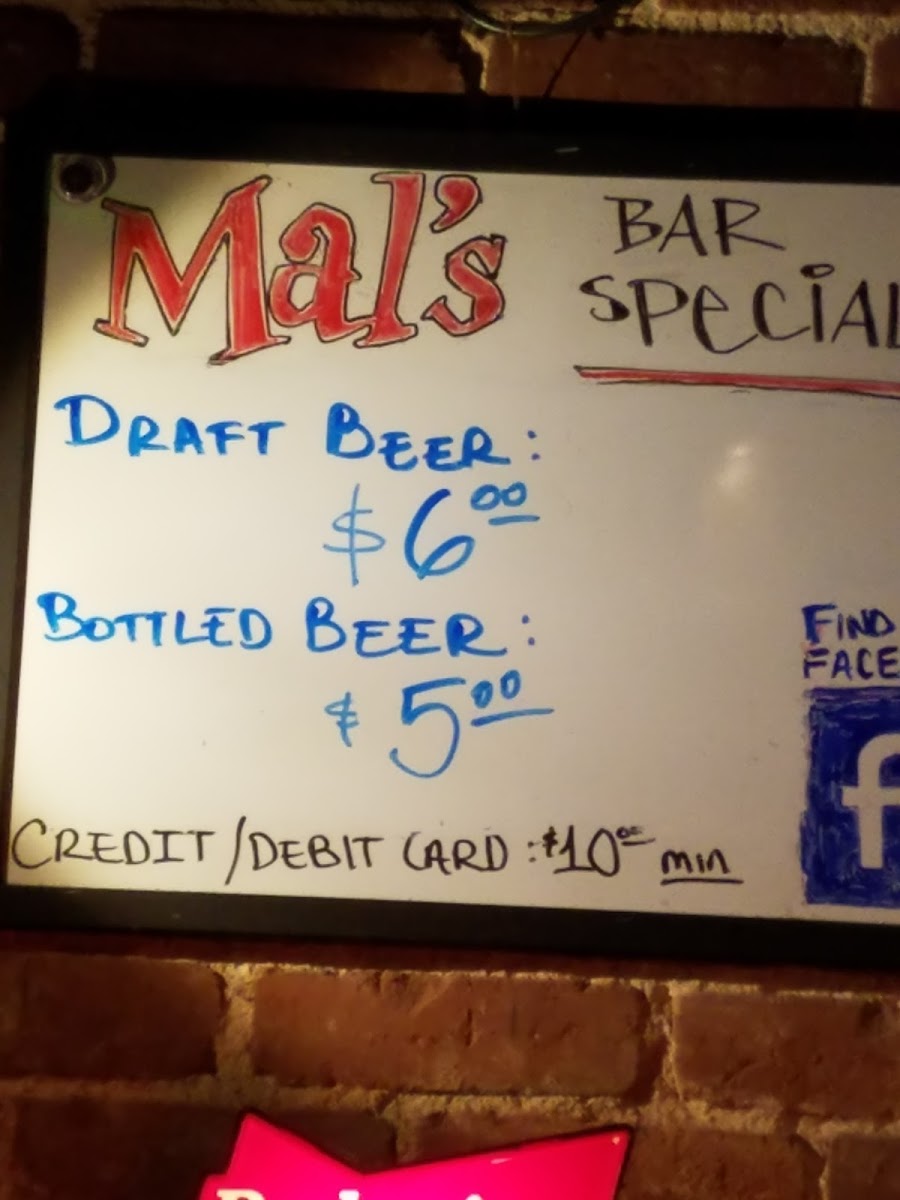 Mal's
BAR
SPECIAL
DRAFT BEER:
$6.00
BOTTLED BEER:
$5.00
FIND
FACE
f
CREDIT/DEBIT CARD: $10.00 min